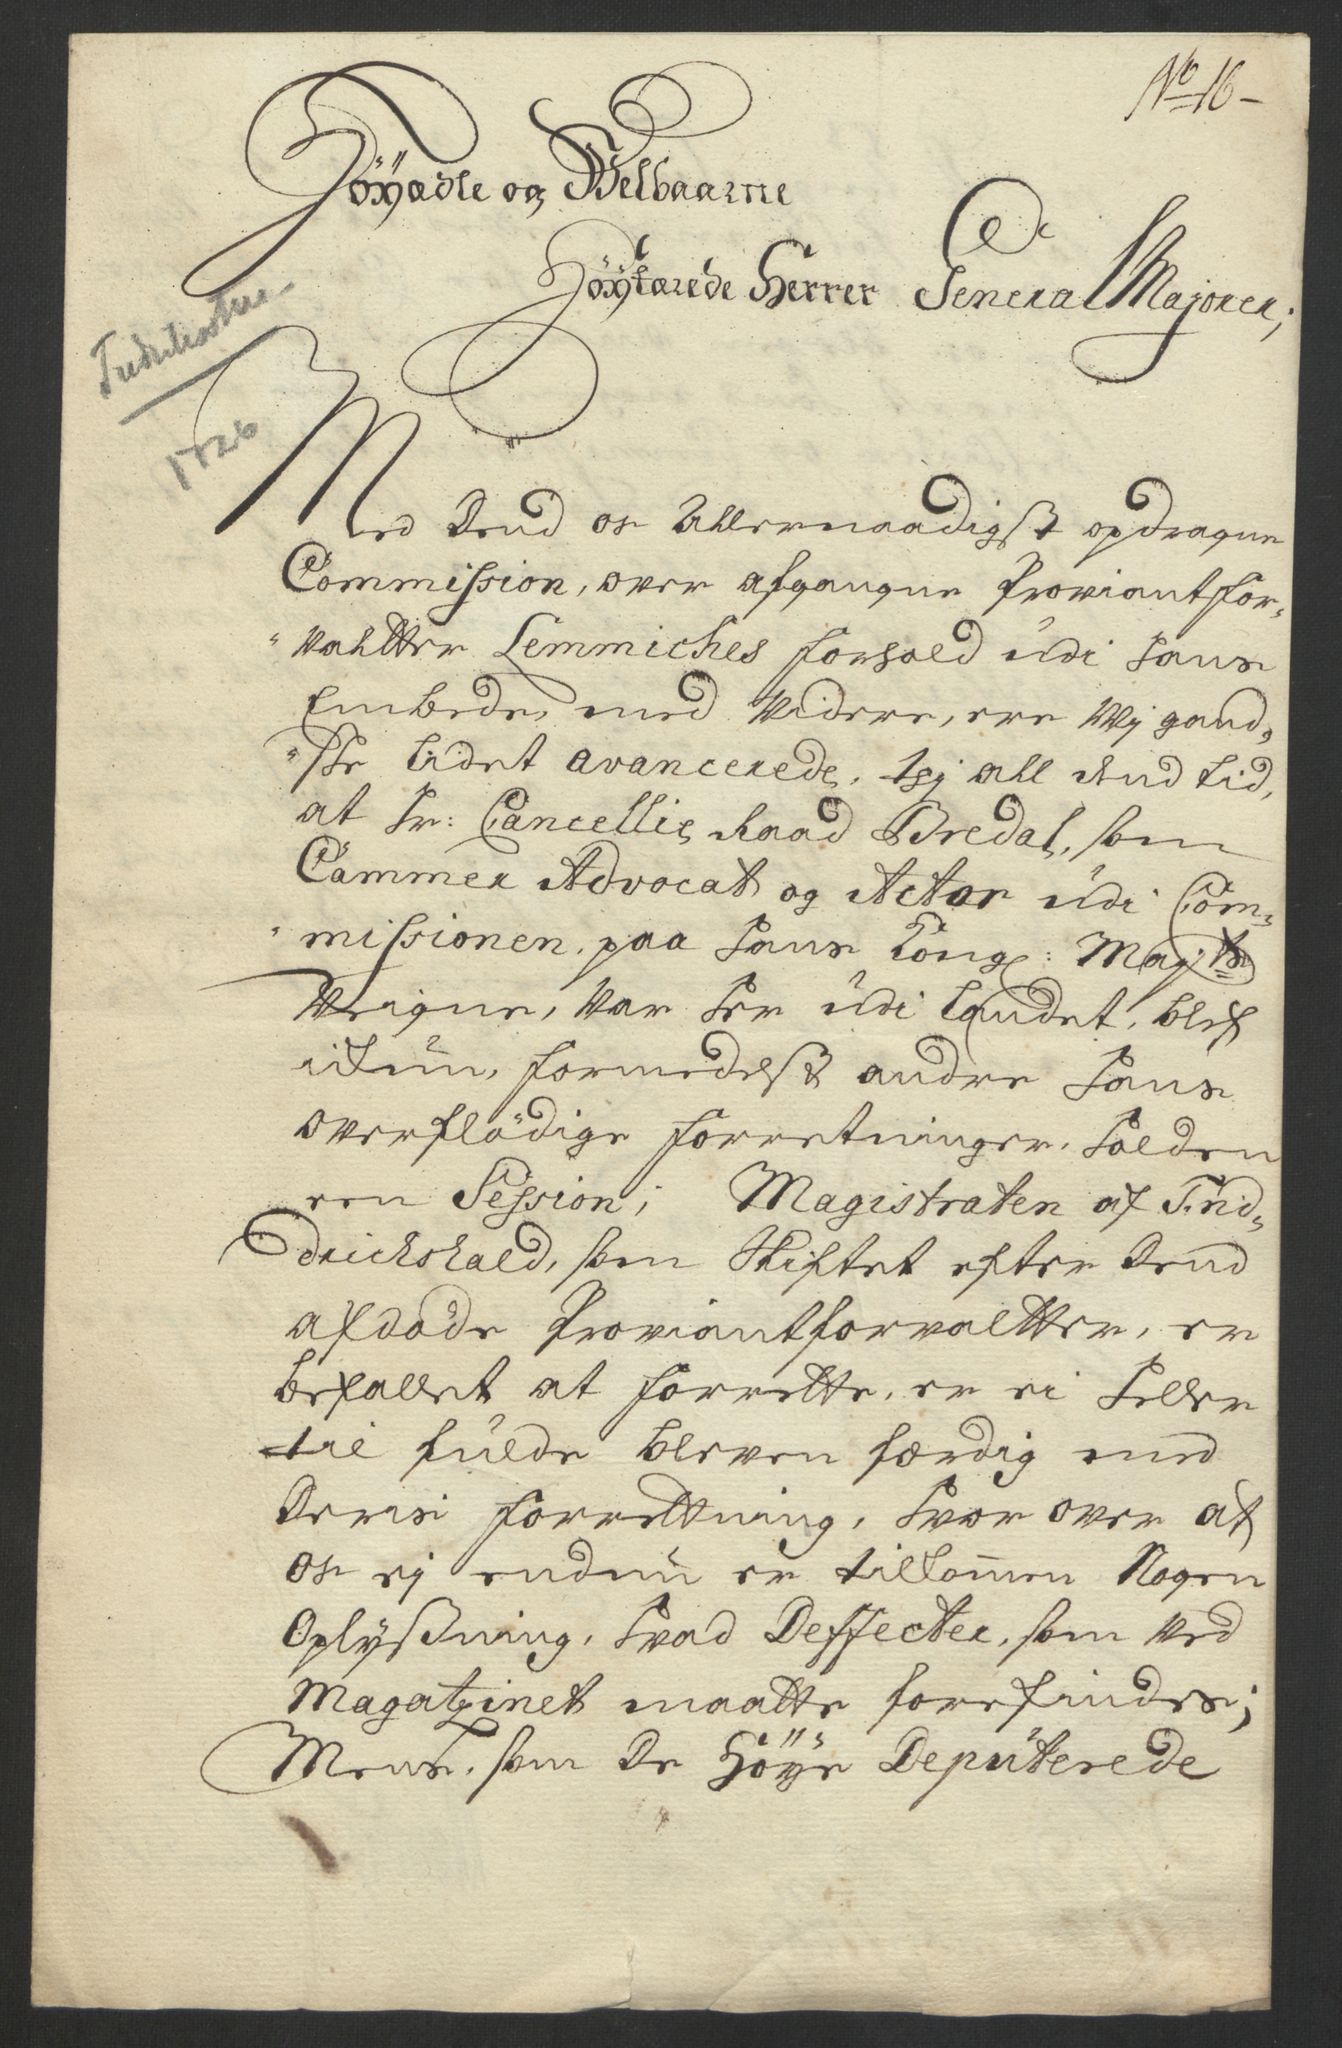 No 16 –
Höÿædle og Welbaarne
Höÿtærede Herrer General Majorer;
1726
Med dend os Allernaadigst opdragne
Commission, over afgangne Proviantfor-
valtter Lemmiches forhold udi hans
Embede, med videre, ere Wj gand-
ske lidet avancerede, thj all dend tid,
at Hr: Cancellie Raad Bredal, som
Cammer Advocat og Actor udi Com-
missionen, paa hans Kong: Majts
Veigne, var her udi Landet, blef
ikun, formedelst andre hans
overflödige forretninger, holden
een Session; Magistraten af Frid-
drichshald, som Skiftet efter dend
afdöde Proviantforvaltter, er
befallet at forrette, er ei heller
til fulde bleven færdig med
deris forrettning, hvor over at
os ej endnu er tilkommen Nogen
Oplysning, hvad Deffecter, som ved
Magatzinet maatte forefindes;
Mens, som de Höÿe Deputerede